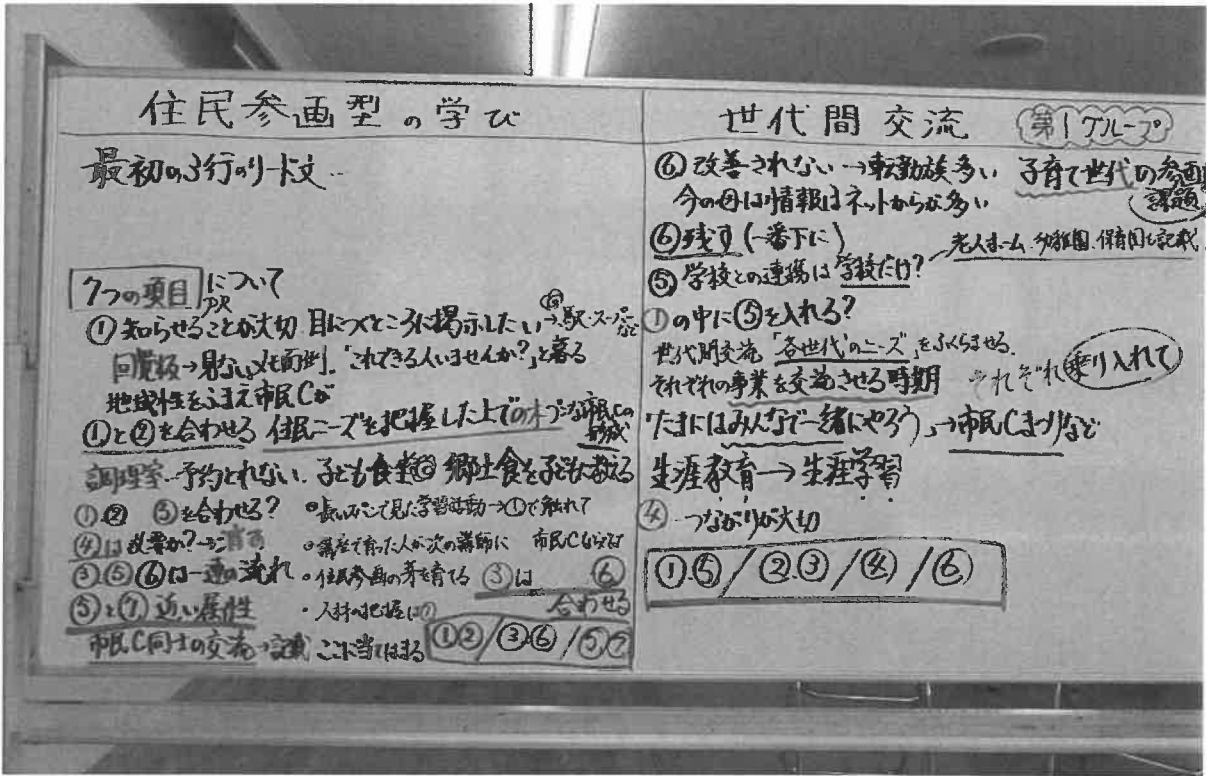 住民参画型の学び
最初の3行のリード文‥
7つの項目について
① 知らせることが大切 目につくところに掲示したい →駅・スーパーなど
回覧板→見ない人も面倒.「これできる人いませんか?」と募る
地域性をふまえ市民Cが
①と②を合わせる 住民ニーズを把握した上での 市民Cの
調理室…予約とれない. 子ども食堂 郷土食を子どもに教える
①② ③を合わせる? ・長いスパンで見た学習活動→①で触れて
④は必要か?→ ・講座で育った人が次の講師に 市民Cならでは
③⑤⑥は一連の流れ ・住民参画の芽を育てる ③は ⑥
⑤と⑦近い属性 ・人材の把握は⑦ 合わせる
市民C同士の交流→記載 ここに当てはまる ①②/③⑥/⑤⑦
世代間交流 第1グループ
⑥ 改善されない→転勤族多い 子育て世代の参画
今の母は情報はネットからが多い 課題
⑥残す(一番下に)
老人ホーム.幼稚園.保育園も記載.
⑤ 学校との連携は学校だけ?
①の中に⑤を入れる?
世代間交流「各世代のニーズ」をふくらませる.
それぞれの事業を交流させる時期 それぞれ乗り入れて
たまにはみんなで一緒にやろう→市民Cまつりなど
生涯教育→生涯学習
④…つながりが大切
①.⑤/②.③/④/⑥